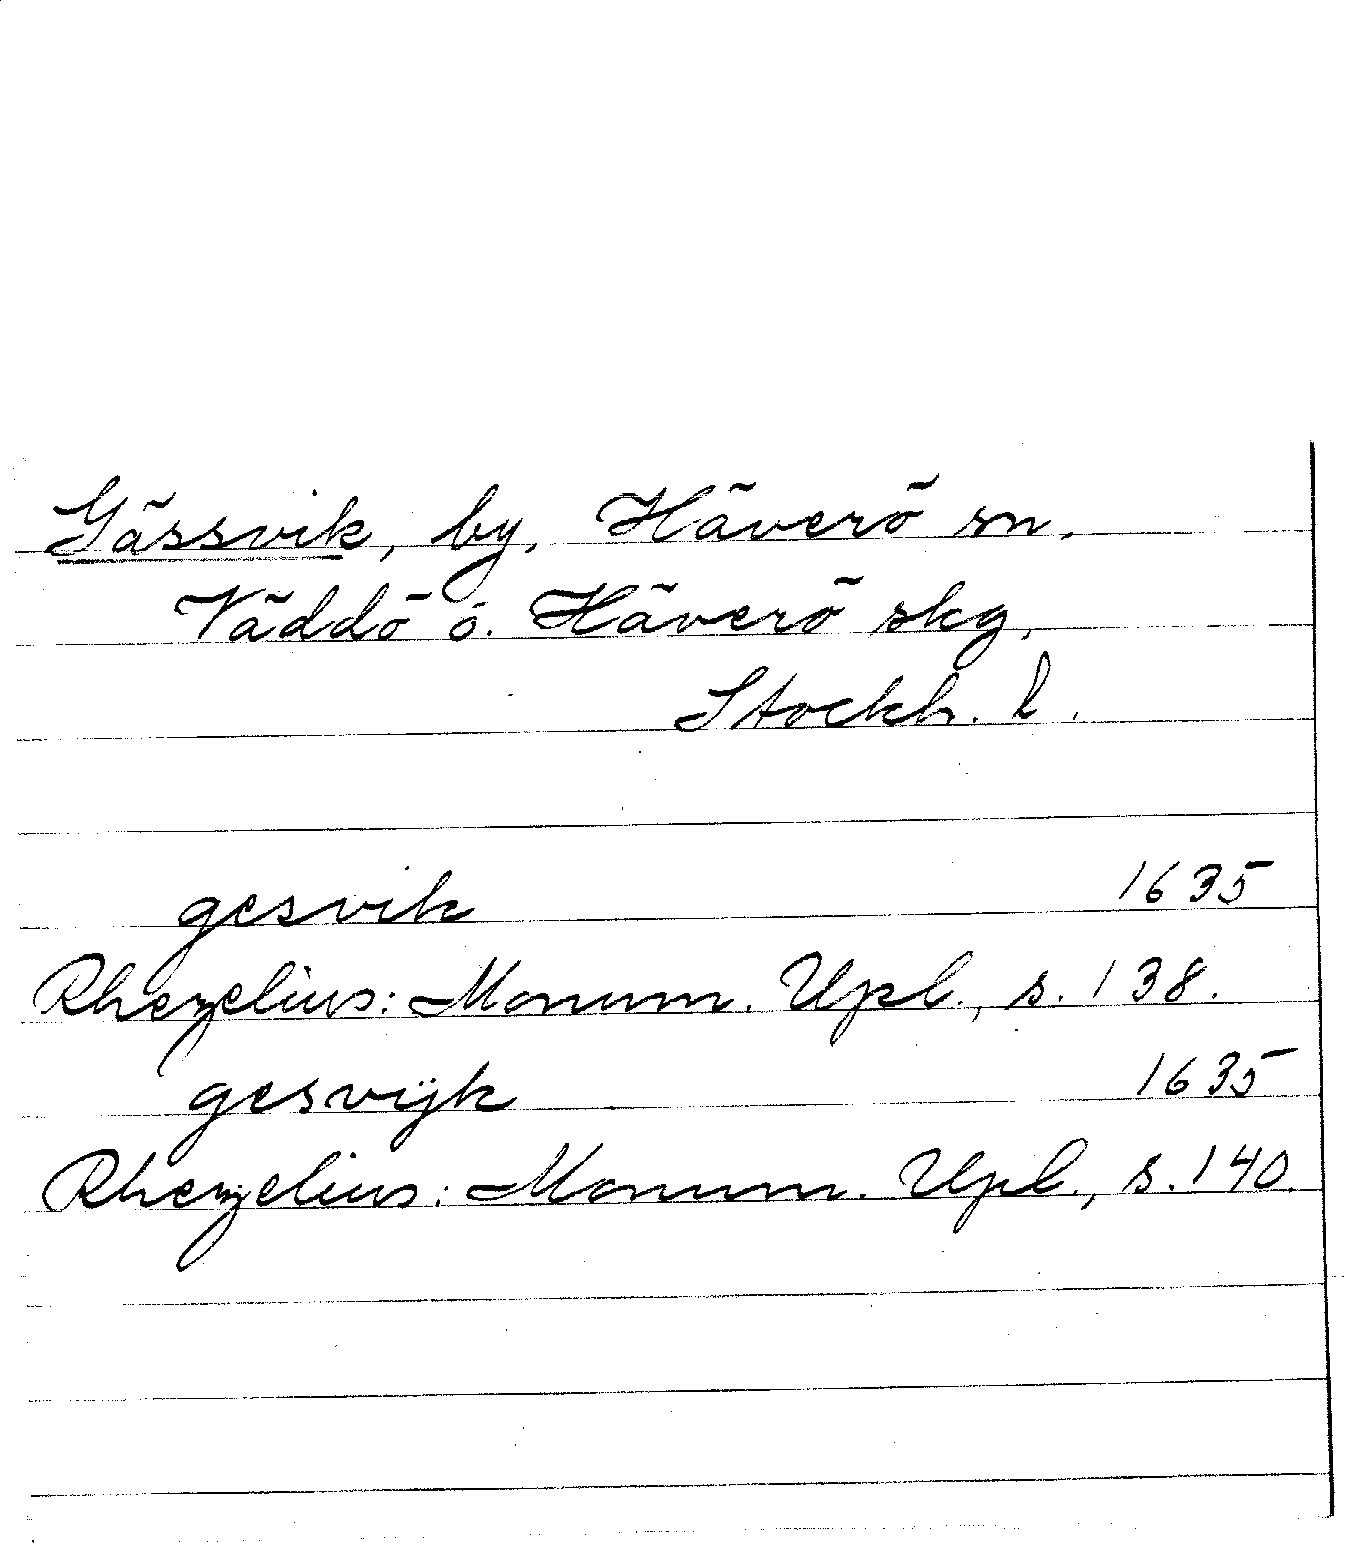 Gässvik, by, Häverö sn,
Väddö o. Häverö skg,
Stockh. l.
gesvik 1635
Rhezelius: Monum. Upl., s. 138.
gesvijk 1635
Rhezelius: Monum. Upl., s. 140.